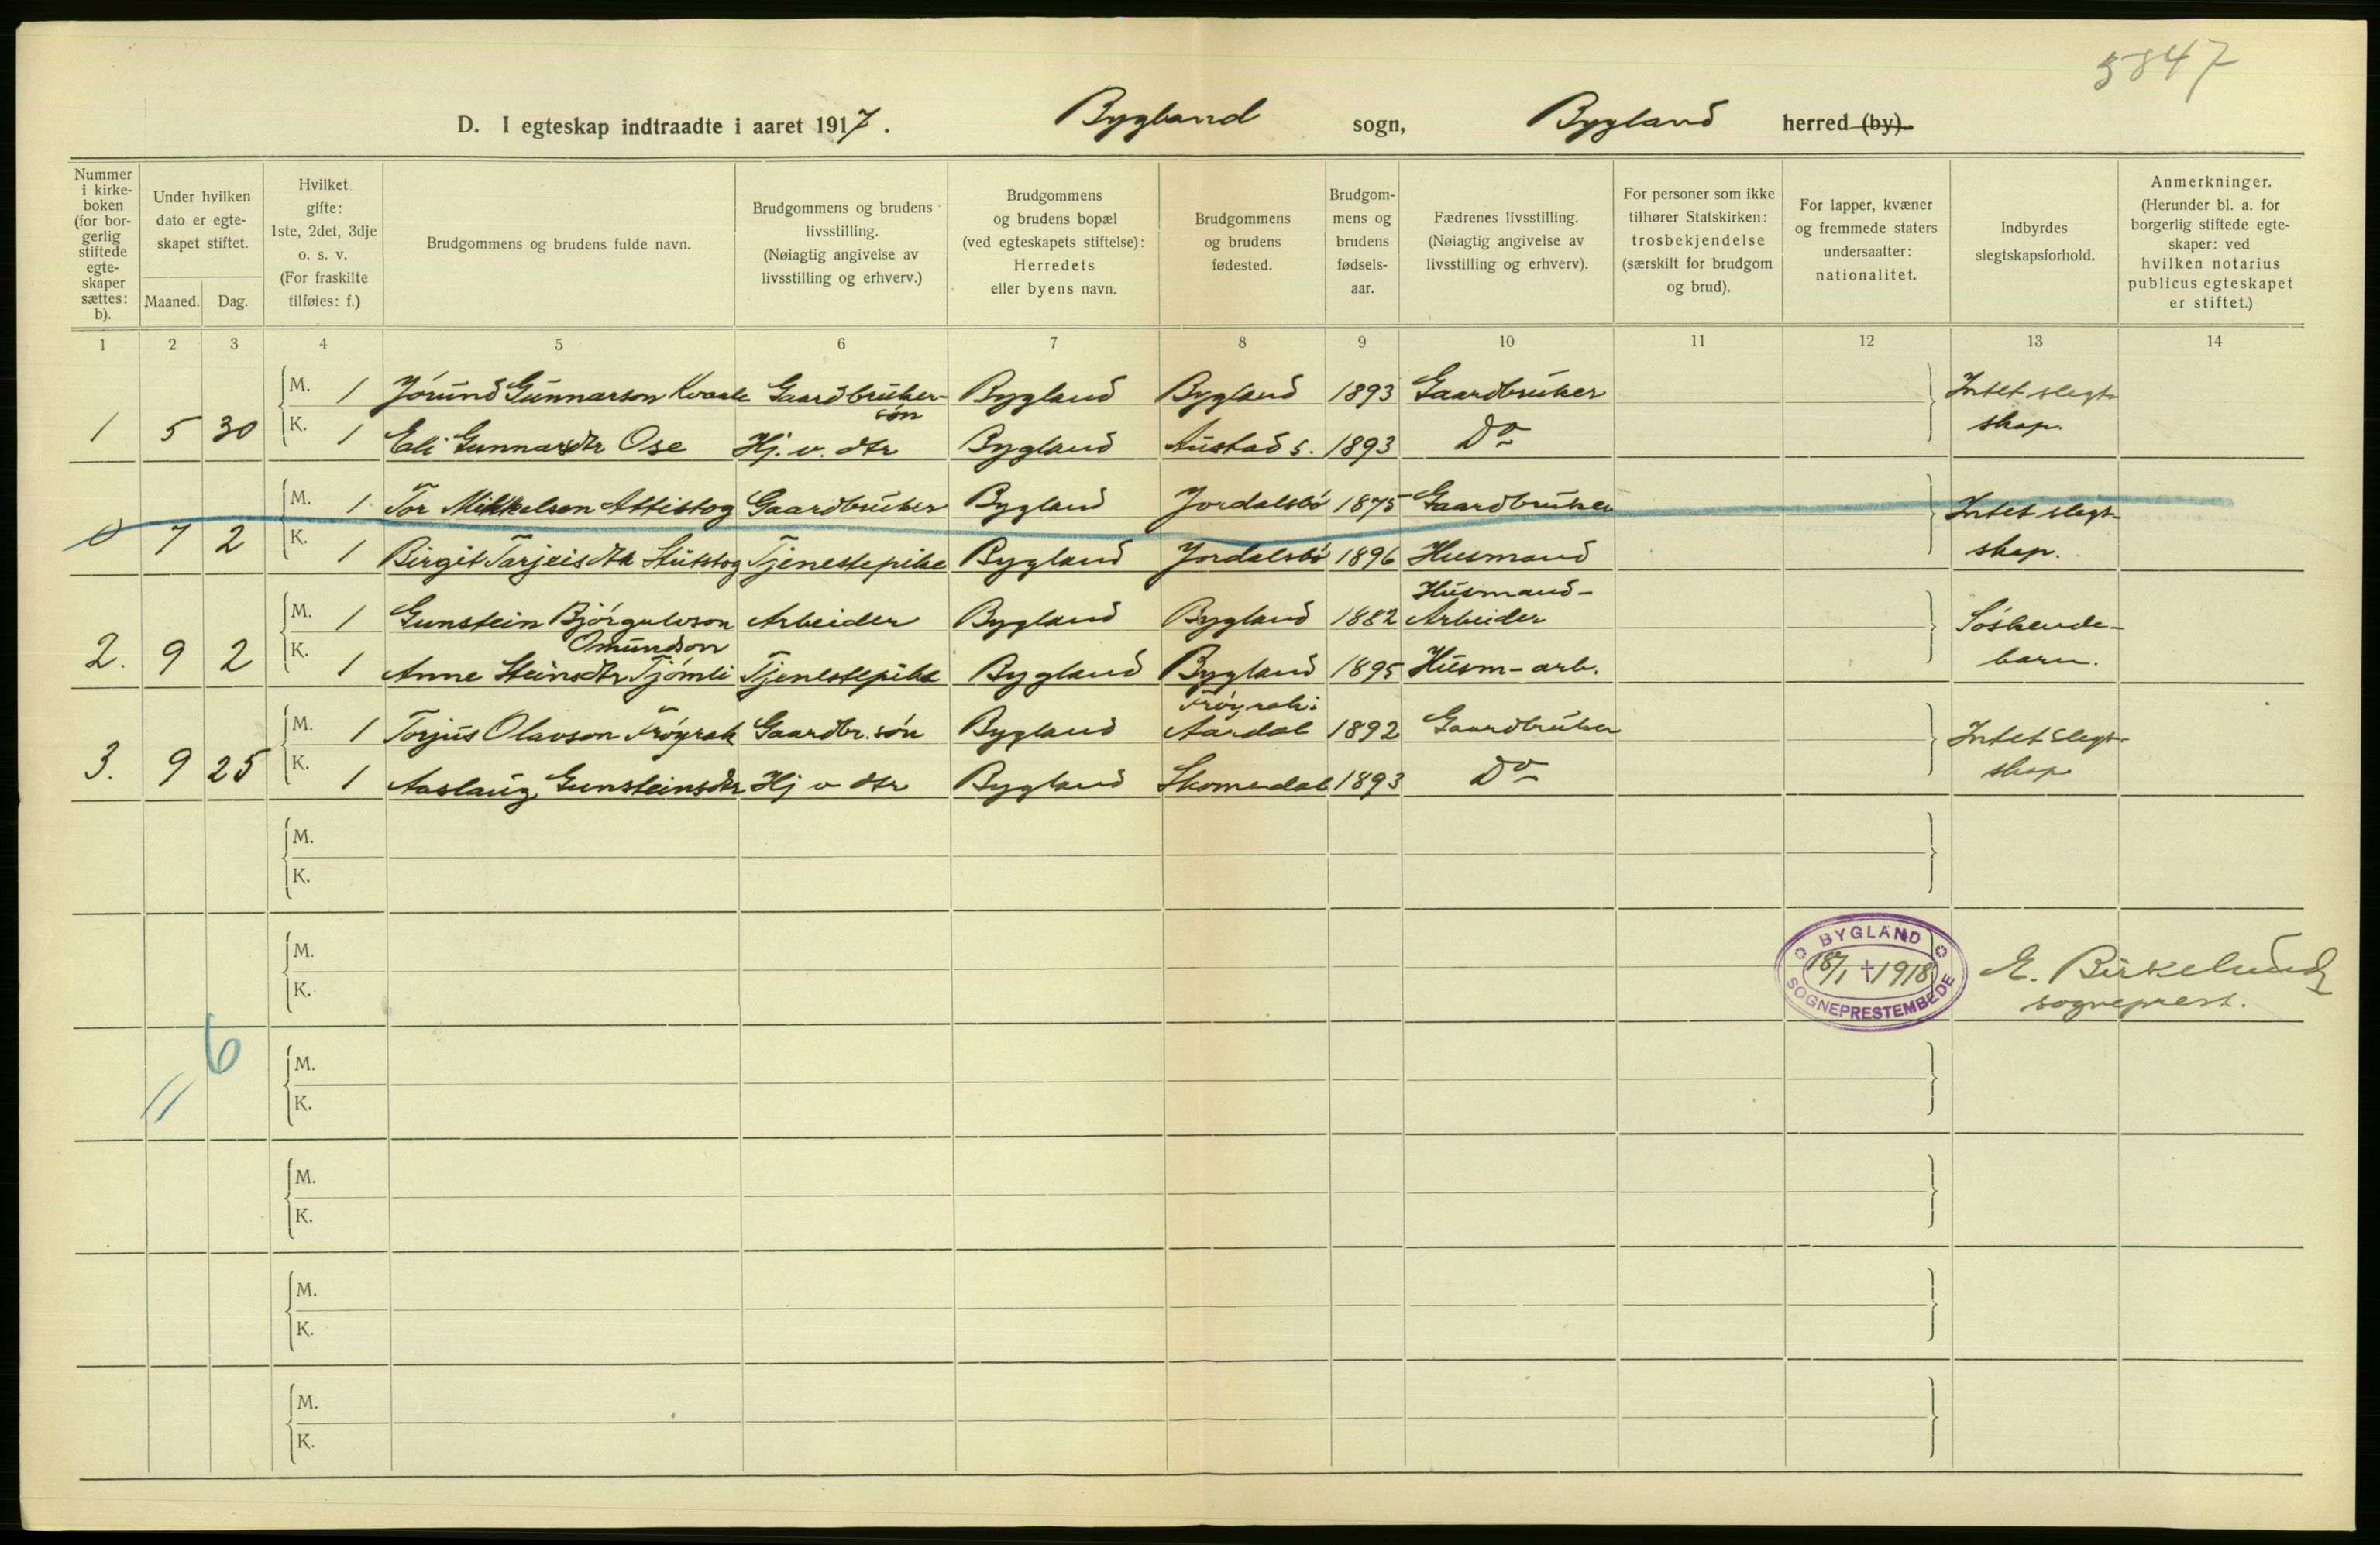 5847
D. I egteskap indtraadte i aaret 1917. Bygland sogn, Bygland herred (by).
Nummer i kirkeboken (for borgerlig stiftede egteskaper sættes: b).
Under hvilken dato er egteskapet stiftet.
Maaned. Dag.
Hvilket gifte: 1ste, 2det, 3dje o. s. v. (For fraskilte tilføies: f.)
Brudgommens og brudens fulde navn.
Brudgommens og brudens livsstilling. (Nøiagtig angivelse av livsstilling og erhverv.)
Brudgommens og brudens bopæl (ved egteskapets stiftelse): Herredets eller byens navn.
Brudgommens og brudens fødested.
Brudgommens og brudens fødselsaar.
Fædrenes livsstilling. (Nøiagtig angivelse av livsstilling og erhverv).
For personer som ikke tilhører Statskirken: trosbekjendelse (særskilt for brudgom og brud).
For lapper, kvæner og fremmede staters undersaatter: nationalitet.
Indbyrdes slegtskapsforhold.
Anmerkninger. (Herunder bl. a. for borgerlig stiftede egteskaper: ved hvilken notarius publicus egteskapet er stiftet.)
1 2 3 4 5 6 7 8 9 10 11 12 13 14
M. 1 Jórund Gunnarson Kvaale Gaardbrukersón Bygland Bygland 1893 Gaardbruker Intet slegt-
1 5 30 K. 1 Eli Gunnarsdtr Ose Hj. v. dtr Bygland Austad s. 1893 Do skap.
M. 1 Tor Mikkelsen Attistog Gaardbruker Bygland Jordalsbó 1875 Gaardbruker Intet slegt-
0 7 2 K. 1 Birgit Tarjeisdtr Stutstog Tjenestepike Bygland Jordalsbó 1896 Husmand skap.
M. 1 Gunstein Bjórgulvson Omundson Arbeider Bygland Bygland 1882 Husmand- Arbeider Sóskende-
2. 9 2 K. 1 Anne Steinsdtr Tjómli Tjenestepike Bygland Bygland 1895 Husm-arb. barn.
M. 1 Torjus Olavson Fróyrak Gaardbr. són Bygland Fróyrak i Aardal 1892 Gaardbruker Intet slegt-
3. 9 25 K. 1 Aaslaug Gunsteinsdtr Hj v dtr Bygland Skomedal 1893 Do skap
M.
K.
M.
K.
BYGLAND SOGNEPRESTEMBEDE
18/1 1918
E. Birkelund
sogneprest.
6
M.
K.
M.
K.
M.
K.
M.
K.